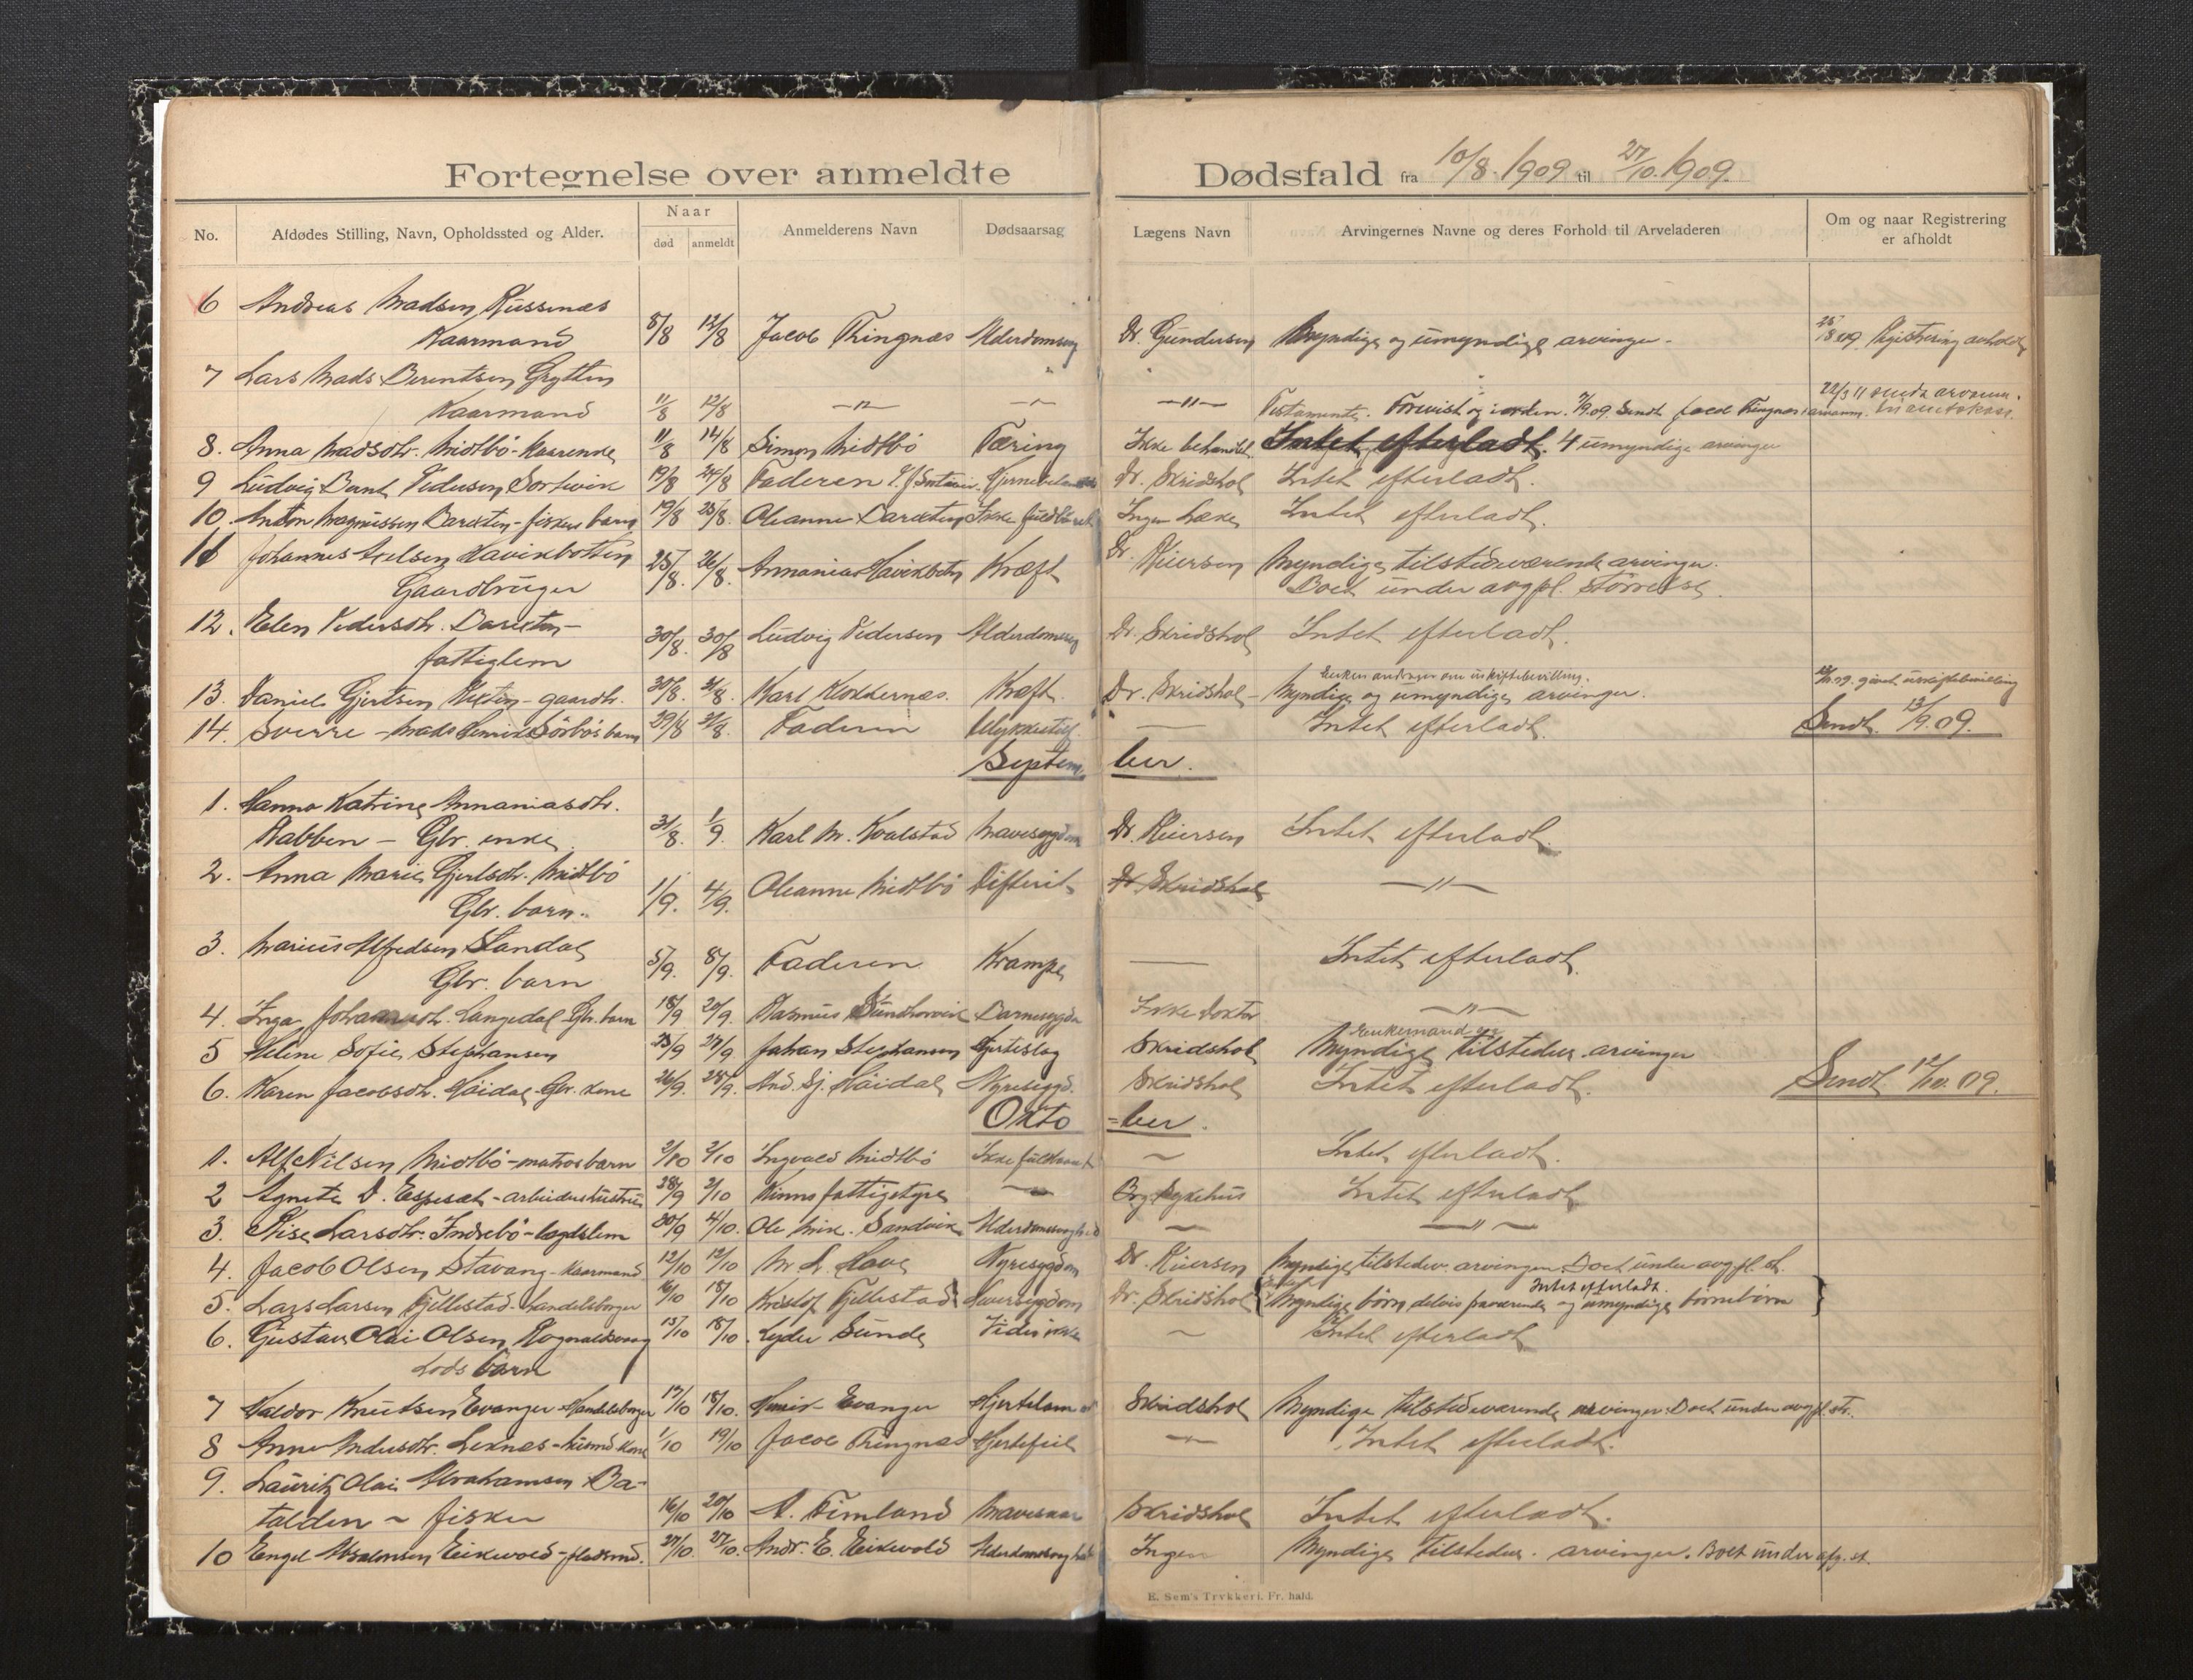 Fortegnelse over anmeldte Dødsfald fra 10/8. 1909 til 27/10. 1909.
No. Afdødes Stilling, Navn, Opholdssted og Alder. Naar død anmeldt Anmelderens Navn Dødsaarsag Lægens Navn Arvingernes Navne og deres Forhold til Arveladeren Om og naar Registrering er afholdt
6 Andreas Madsen
Kaarmand 8/8 12/8 Jacob Tringnæs Alderdomssvag Dr. Gundersen Myndige og umyndige arvinger. Registrering avholdt
7 Lars Mads Berentsen Grytten
Kaarmand 11/8 12/8 —"— —"— —"— Testamente. 7/9 09 Sendt Jacob Tringnæs
8. Anna Madsdtr. Midtbö - Kaarenke 11/8 14/8 Simon Midtbö Tæring Ikke behandlet Intet efterladt. 4 umyndige arvinger
9 Ludvig Bernt Pedersen Sortevik 19/8 24/8 Faderen Dr. Skridshol Intet efterladt.
10. Anton Magnussen Barekten - fiskers barn 19/8 25/8. Oleanne Barekten Ikke fuldbaaret Ingen Læke Intet efterladt.
11 Johannes Axelsen Havikbotten
Gaardbruger 25/8. 26/8. Annanias Havikbotn Kræft Dr. Kiersen Myndige tilstedeværende arvinger.
Boet under avgpl. størrelse.
12. Elen Pedersdtr. Barekten -
fattiglem 30/8. 30/8 Ludvig Pedersen Alderdomssvag Dr. Skridshol Intet efterladt.
Enken andrager om uskiftebevilling.
13. Daniel Gjertsen - gaardbr. 30/8. 31/8. Karl Kloddernæs. Kræft Dr. Skridshol - Myndige og umyndige arvinger. givet uskiftebevilling
14. Sverre - Mads Henrik Sörbös barn 29/8 31/8. Faderen Ulykkestilf. — Intet efterladt. Sendt 13/9. 09.
September.
1. Hanna Katrine Annaniasdtr.
Nabben - Gbr. enke. 31/8. 1/9. Karl M. Kvalstad Mavesygdom Dr. Kiersen Intet efterladt.
2. Anna Marie Gjertsdtr. Midtbö
Gbr. barn. 1/9. 4/9. Oleanne Midtbö Difterit Dr. Skridshol —"—
3. Marius Alfredsen Standal
Gbr. barn 5/9. 8/9. Faderen Krampe — Intet efterladt.
4. Inga Johannesdtr. Langedal Gbr. barn 18/9 20/9. Rasmus Barnesygdom Ikke doktor —"—
Enkemand og
5 Helene Sofie Stephansen 23/9 27/9 Johan Stephansen Hjerteslag Skridshol Myndige tilstedev. arvinger
6. Karen Jacobsdtr. Höidal Gbr. kone 26/9. 28/9. And. Sj. Höidal Nyresygd. Skridshol Intet efterladt. Sendt 12/10. 09.
Okto=ber.
1. Alf Nilsen Midtbö - matros barn 2/10 2/10 Ingvald Midtbö Ikke fuldbaaret ~ Intet efterladt.
2 Agnete D. Espeset - arbeiderhustru 28/9 2/10 Kinns fattigstyre —"— Brg Sykehus Intet efterladt.
3. Larsdtr. Indrebö - lægdslem 30/9 4/10. Ole Mik. Sandvik Alderdomssvaghed ~ —"—
4. Jacob Olsen Stavang - Kaarmand. 12/10 12/10 M. L. Have Nyresygdom Dr. Kiersen Myndige tilstedev. arvinger. Boet under avgpl. st.
Intet efterladt.
5. Lars Larsen Tjellestad - Landelsborger 16/10 18/10 Kristof Tjellestad Leversygdom Dr. Skridshol Myndige børn delvis fraværende og umyndige børnebörn
6. Gustav Olai Olsen Rognaldsvaag
Lods barn 15/10 18/10. Lyder Sunde Vides ikke ~ Intet efterladt
7 Haldor Knutsen Evanger Handelsborger 17/10 18/10. Henrik Evanger Hjertelam Skridshol Myndige tilstedeværende arvinger. Boet under avgpl. str.
8 Anne Andersdtr. Leknes - husmd kone 1/10 19/10 Jacob Tringnæs Hjertefeil —"— Intet efterladt.
9. Lauritz Olai Abrahamsen Ba-
talden ~ fisker 16/10 20/10 A. Timland Mavesaar Skridshol Intet efterladt.
10 Engel Absalonsen Eikevold - pladsmd. 27/10. 27/10. Andr. E. Eikevold Alderdomssvaghed Ingen Myndige tilstedev. arvinger. Boet under afg. st.
E. Sem's Trykkeri. Fr. hald.